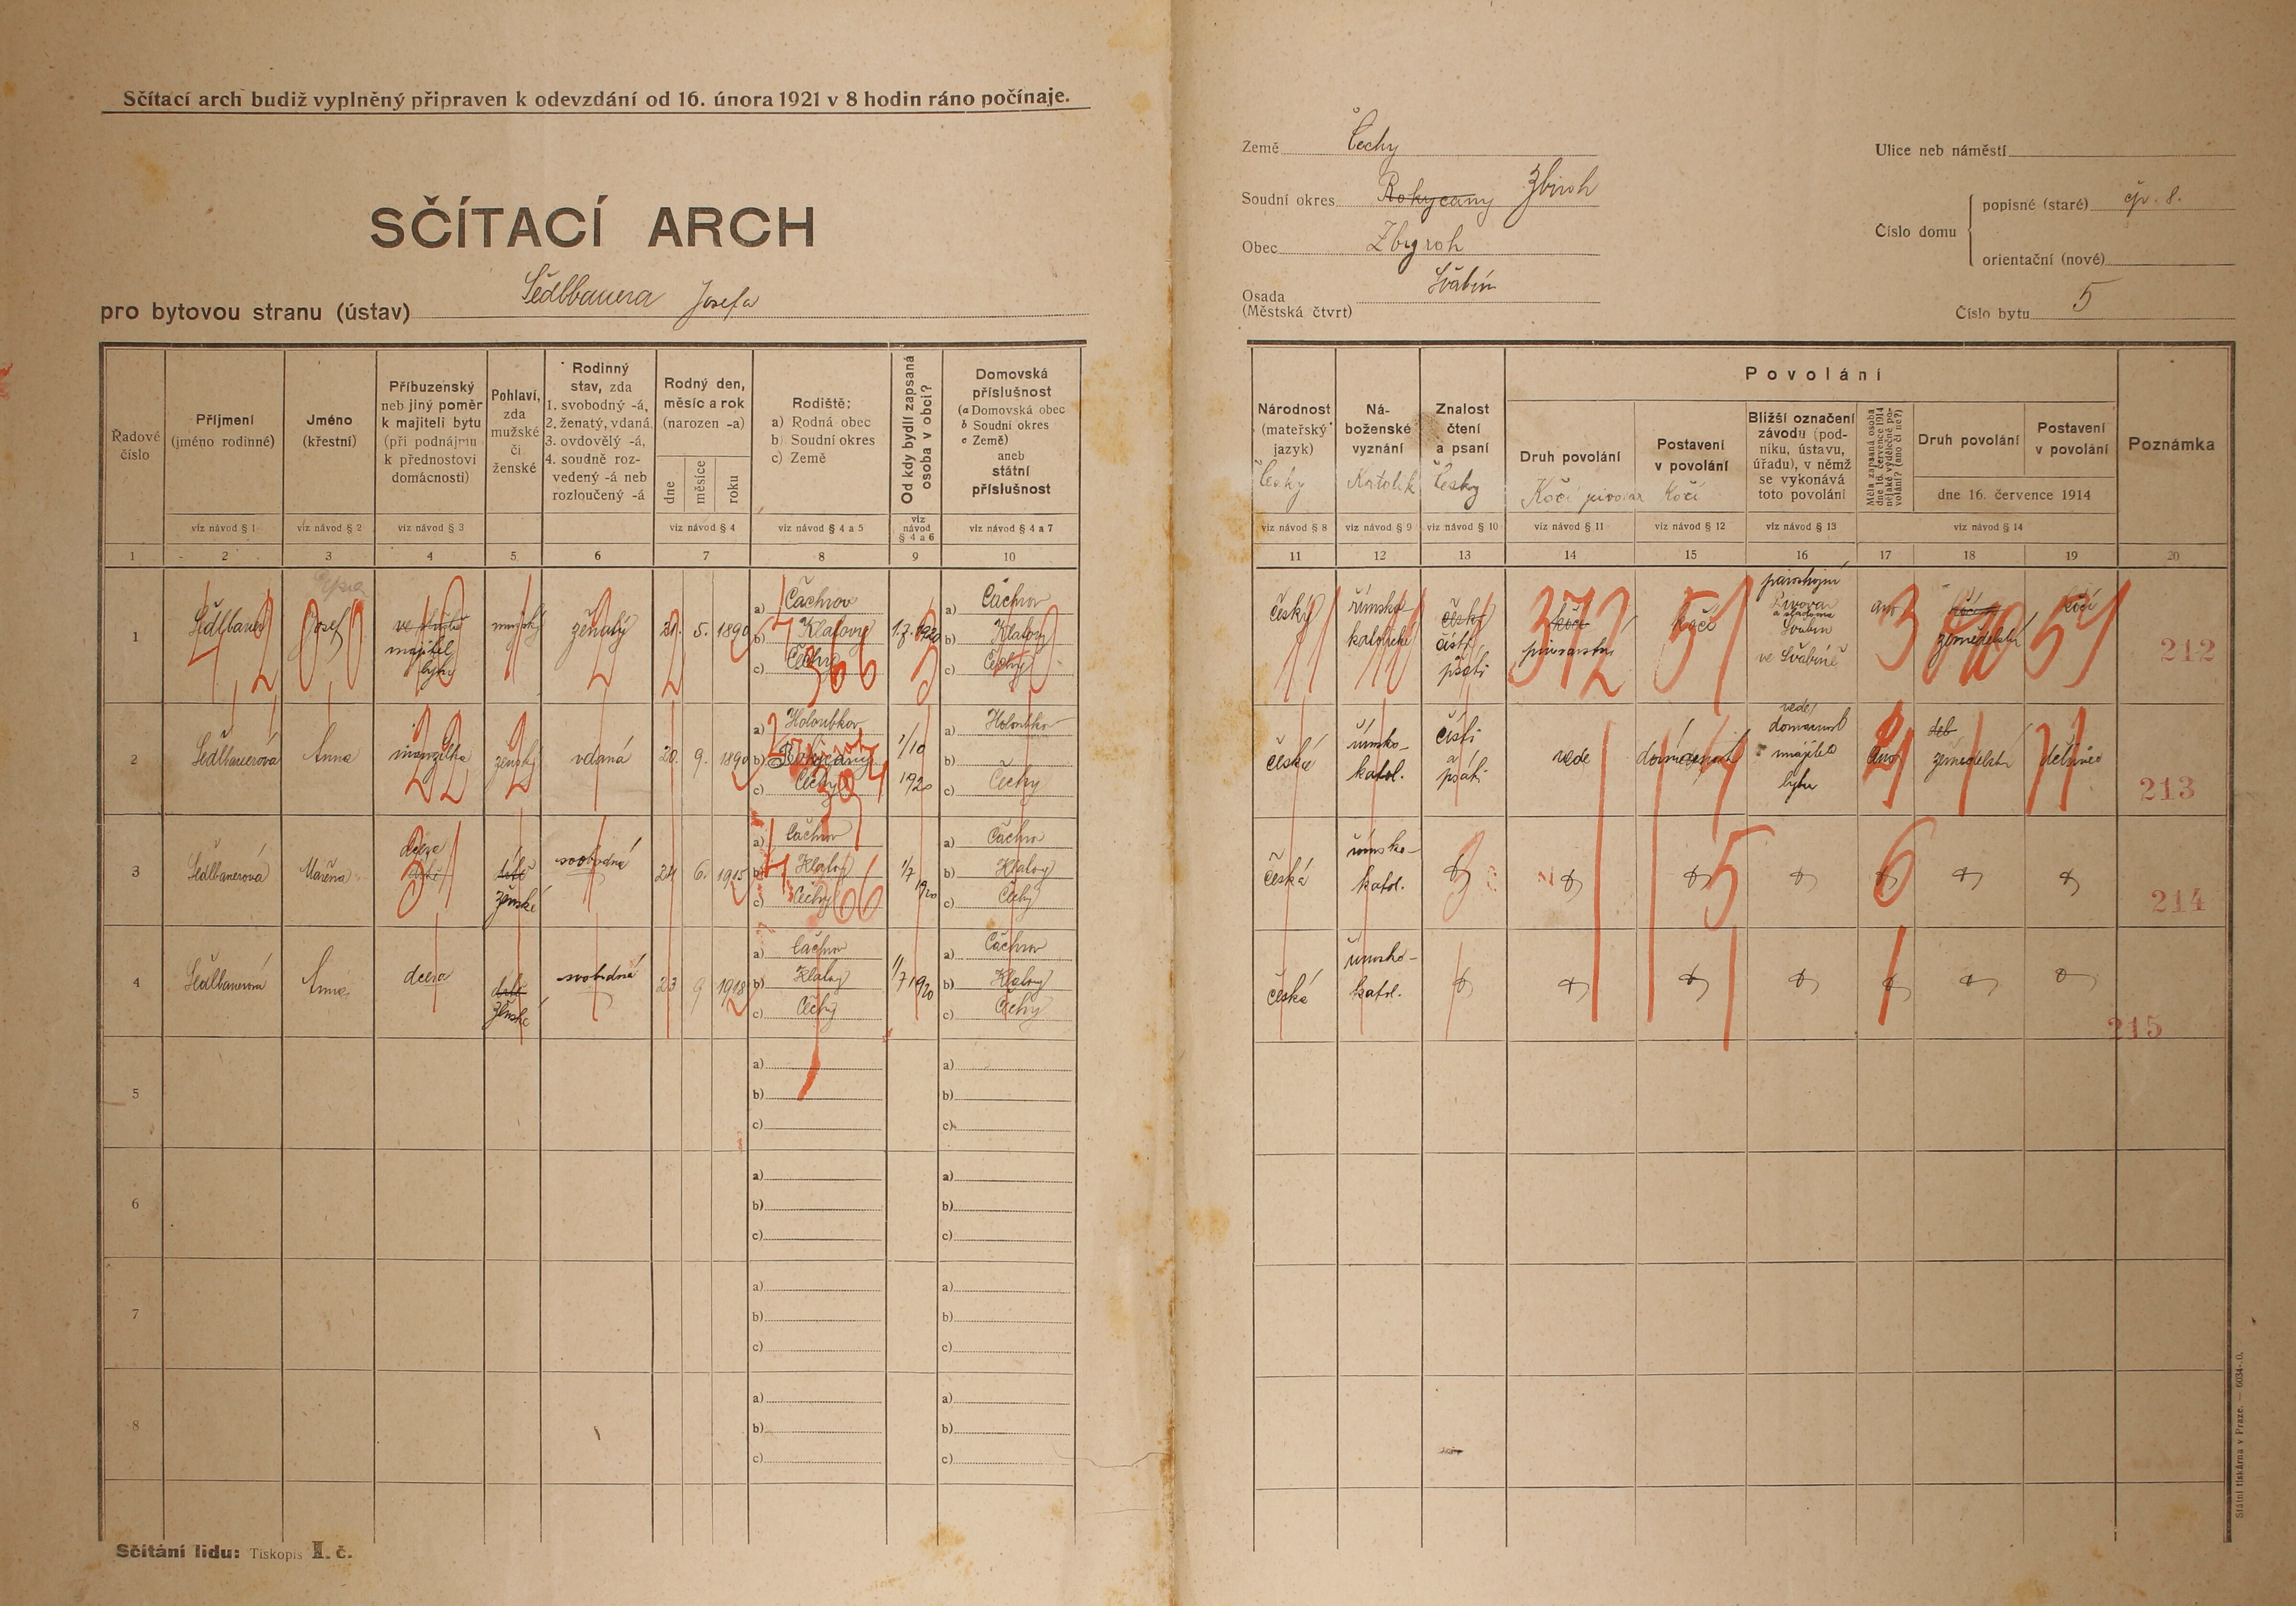 Sčítací arch budiž vyplněný připraven k odevzdání od 16. února 1921 v 8 hodin ráno počínaje.
SČÍTACÍ ARCH
pro bytovou stranu (ústav) Šedlbauera Josefa
Země Čechy
Soudní okres Rokycany Zbiroh
Obec Zbyroh
Osada Švabín
(Městská čtvrt)
Ulice neb náměstí
Číslo domu
popisné (staré) čp. 8.
orientační (nové)
Číslo bytu 5
Řadové číslo
Příjmení
(jméno rodinné)
viz návod § 1
Jméno
(křestní)
viz návod § 2
Příbuzenský
neb jiný poměr
k majiteli bytu
(při podnájmu
k přednostovi
domácnosti)
viz návod § 3
Pohlaví,
zda
mužské
či
ženské
Rodinný
stav, zda
1. svobodný -á,
2. ženatý, vdaná,
3. ovdovělý -á,
4. soudně roz-
vedený -á neb
rozloučený -á
Rodný den,
měsíc a rok
(narozen -a)
dne
měsíce
roku
viz návod § 4
Rodiště:
a) Rodná obec
b) Soudní okres
c) Země
viz návod § 4 a 5
Od kdy bydlí zapsaná
osoba v obci?
viz
návod
§ 4 a 6
Domovská
příslušnost
(a Domovská obec
b Soudní okres
c Země)
aneb
státní
příslušnost
viz návod § 4 a 7
Národnost
(mateřský
jazyk)
Česky
viz návod § 8
Ná-
boženské
vyznání
Katolik
viz návod § 9
Znalost
čtení
a psaní
Česky
viz návod § 10
Povolání
Druh povolání
Kočí pivovar
viz návod § 11
Postavení
v povolání
Kočí
viz návod § 12
Bližší označení
závodu (pod-
niku, ústavu,
úřadu), v němž
se vykonává
toto povolání
viz návod § 13
Měla zapsaná osoba
dne 16. července 1914
nějaké výdělečné po-
volání? (ano či ne?)
Druh povolání
Postavení
v povolání
dne 16. července 1914
viz návod § 14
Poznámka
1 2 3 4 5 6 7 8 9 10
11 12 13 14 15 16 17 18 19 20
1 Šedlbauer Josef
majitel
bytu
mužský ženatý 20. 5. 1890
a) Čachrov
b) Klatovy
c) Čechy
366
1.7. 1920
a) Čachrov
b) Klatovy
c) Čechy
český
římsko-
katolické
český
čísti
psáti
kočí
pivovarství
372
kočí
51
Pivovar
a sladovna
Švabín
ve Švabíně
ano
3
zemědělství
kočí
51
212
2 Šedlbauerová Anna manželka ženský vdaná 20. 9. 1890
22
a) Holoubkov
b) Rokycany
c) Čechy
1/10
1920
a) Holoubkov
b)
c) Čechy
česká
římsko-
katol.
čísti
a
psáti
vede
domácnost
vede
domácnost
majitele
bytu
ano
zemědělství
213
3 Šedlbauerová Mařena
dcera
dítě
ženské
svobodná 24 6. 1915
a) Čachrov
b) Klatovy
c) Čechy
1/7
1920
a) Čachrov
b) Klatovy
c) Čechy
česká
římsko-
katol.
3
5
6
214
4 Šedlbauerová Anna dcera
dítě
ženské
svobodná 23 9 1918
a) Čachrov
b) Klatovy
c) Čechy
1/7 1920
a) Čachrov
b) Klatovy
c) Čechy
česká
římsko-
katol.
215
5
a)
b)
c)
a)
b)
c)
6
a)
b)
c)
a)
b)
c)
7
a)
b)
c)
a)
b)
c)
8
a)
b)
c)
a)
b)
c)
Sčítání lidu: Tiskopis I. č.
Státní tiskárna v Praze. — 6034-0.